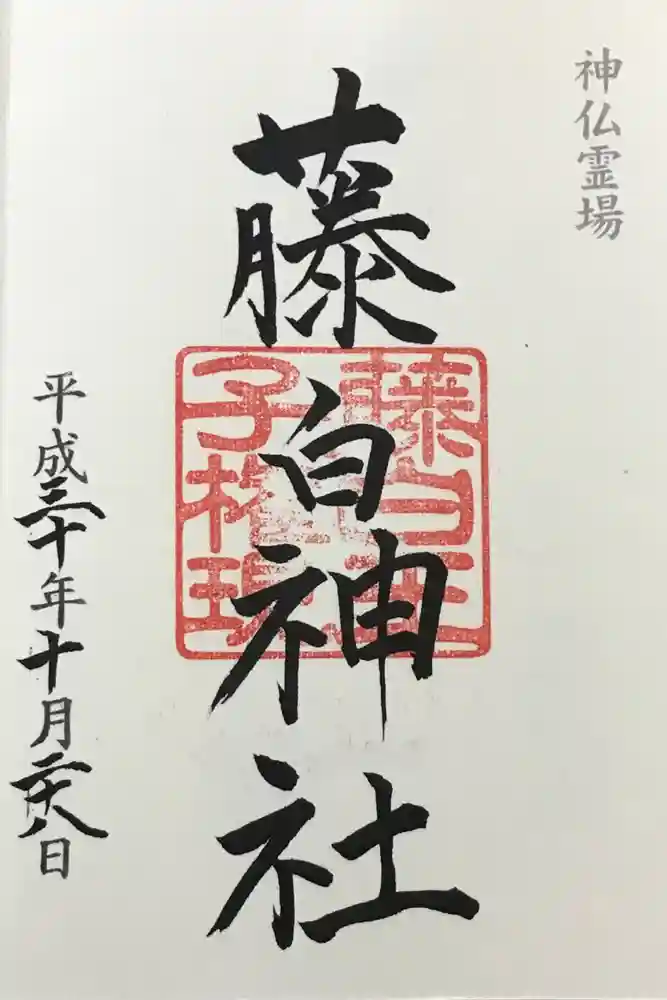 神仏霊場
藤白神社
藤白王
子権現
平成三十年十月二十八日